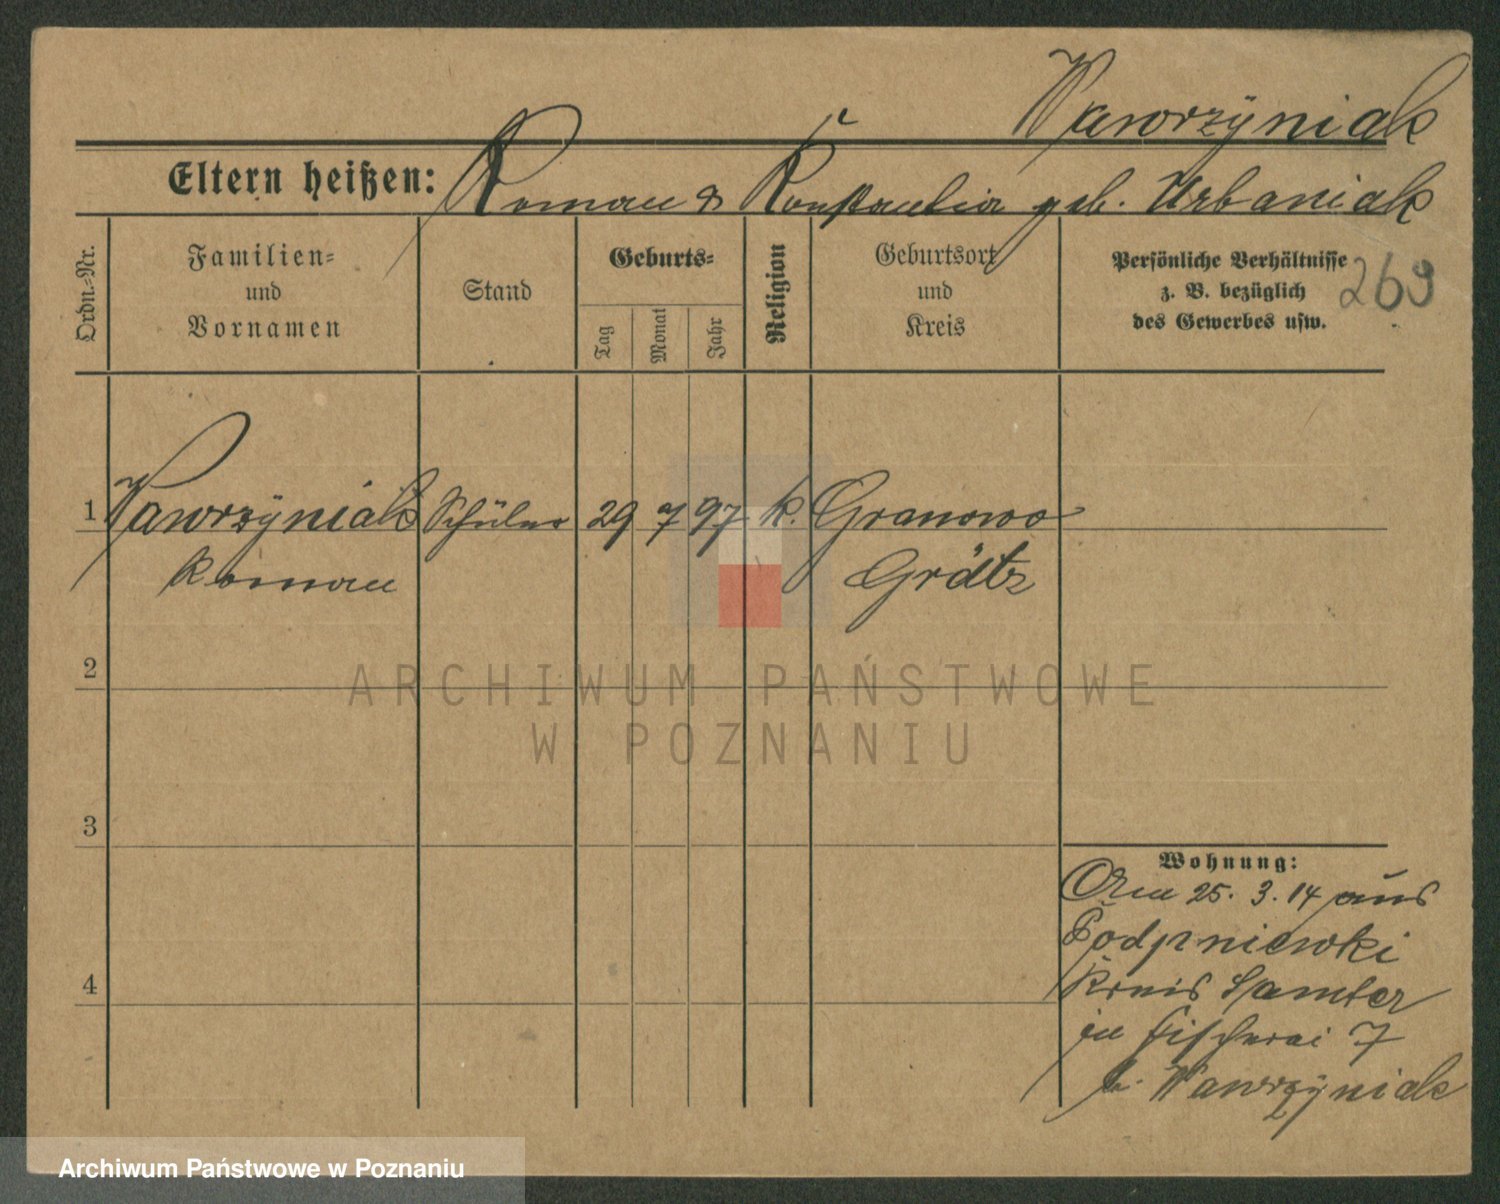 Wawrzyniak
Eltern heißen: Roman & Konstantia geb. Urbaniak
Ordn.-Nr.
Familien-
und
Vornamen
Stand
Geburts-
Tag
Monat
Jahr
Religion
Geburtsort
und
Kreis
Persönliche Verhältnisse
z. B. bezüglich
des Gewerbes usw.
269
1 Wawrzyniak Schüler 29 7 97 k. Granowo
Roman Grätz
2
3
4
Wohnung:
25. 3. 14 aus
Podpniewki
Kreis Samter
in Fischerei 7
b. Wawrzyniak
ARCHIWUM PAŃSTWOWE
W POZNANIU
Archiwum Państwowe w Poznaniu